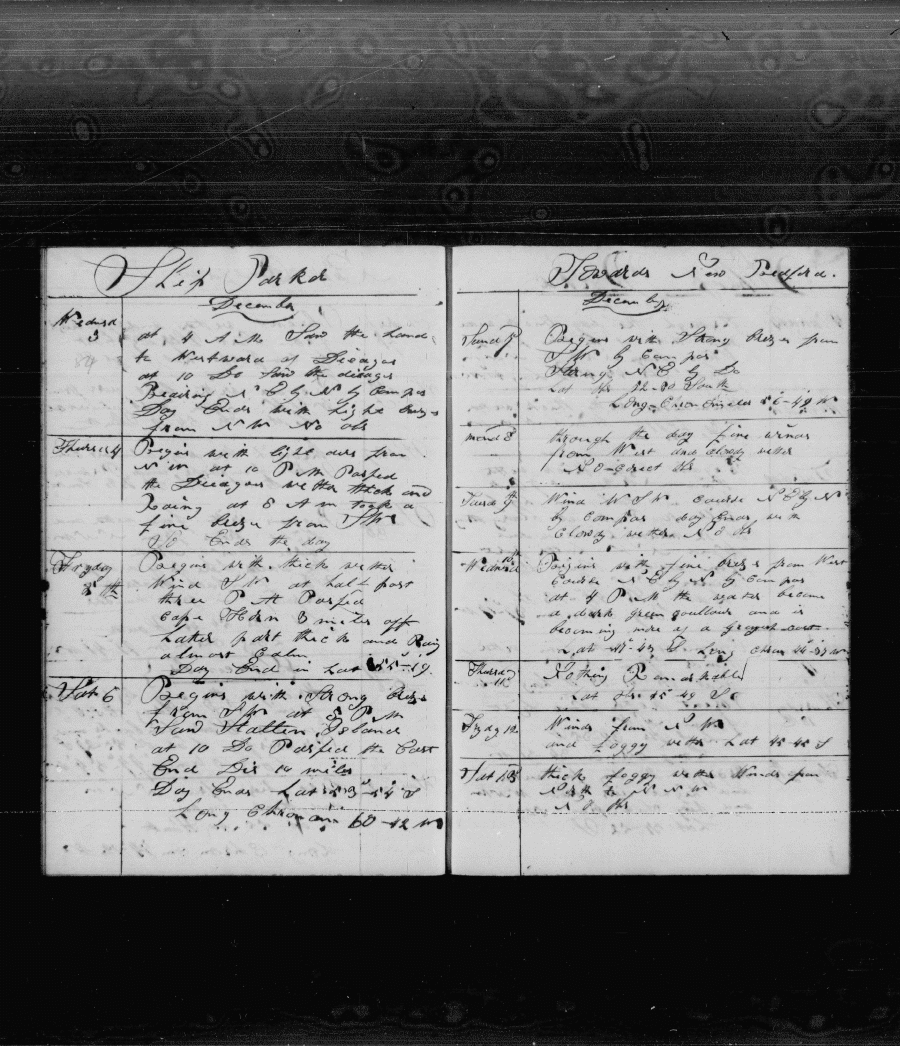 Ship Parker
December
Wedusd
3
at 4 A M Saw the Land
to Westward of Dieagos
at 10 Do Saw the dieagos
Bearing N E by N by Compas
Day Ends with Light Brezes
from N W No obs
Thursd 4
Begins with light airs from
N W at 10 P M Passed
the Dieagos wether thick and
Raing at 8 A m took a
fine breze from SW
So Ends the day
Frydy
5th
Begins with thick wether
Wind S W at half past
three P M Passed
Cape Horn 8 miles off
Later part thick and Raiy
almost Calm
Day End in Lat 55-19
Sat 6
Begins with Strong brezes
from SW at 5 P M
Saw Statten Island
at 10 Do Passed the East
End Dis 14 miles
Day Ends Lat 53-54 S
Long Chronom 60-42 W
Towards New Bedford.
December
Sund 7
Begins with Strong brezes from
S W by Compas
String N E by Do
Lat Obs South
Long Chronometer 56-49 W
mond 8
through the day fine winds
from West and Cloudy wether
N E Corect Obs
Tuesd 9th
Wind W S W Course N E by N
by Compas day Ends with
Cloudy wether N O Obs
Wednesd 10th
Begins with fine brezes from West
Course N E by N by Compas
at 4 P M the water became
a dark green coullour and is
becoming more of a
Lat 47-43 S. Long Chron
Thursd
11
Nothing Remarkable
Lat Obs 45-49 So
Frydy 12
Winds from N W
and foggy wether Lat 45-45 S
Sat 13
thick foggy wether Winds from
North to N N W
N O Obs